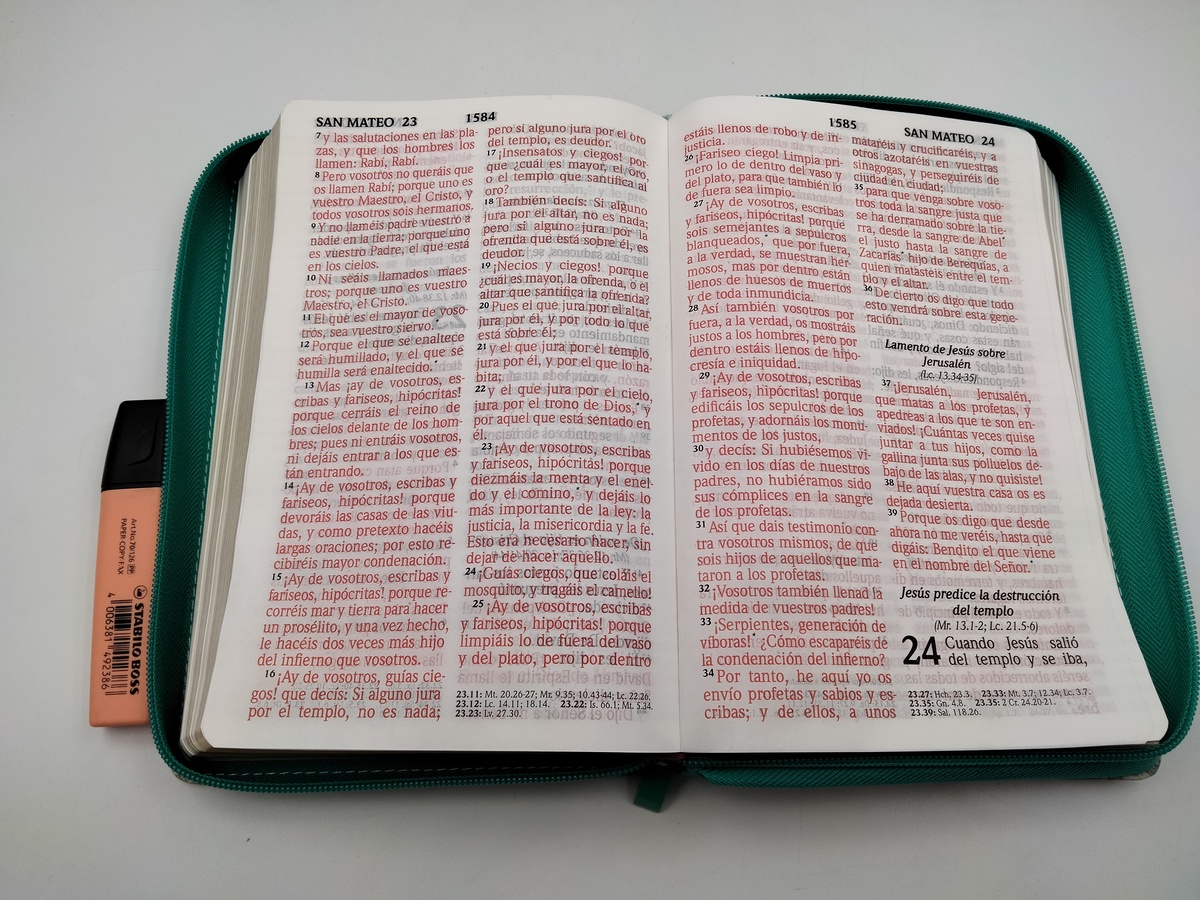 SAN MATEO 23
1584
7 y las salutaciones en las pla-
zas, y que los hombres los
llamen: Rabí, Rabí.
8 Pero vosotros no queráis que
os llamen Rabí; porque uno es
vuestro Maestro, el Cristo, y
todos vosotros sois hermanos.
9 Y no llaméis padre vuestro a
nadie en la tierra; porque uno
es vuestro Padre, el que está
en los cielos.
10 Ni seáis llamados maes-
tros; porque uno es vuestro
Maestro, el Cristo.
11 El que es el mayor de voso-
tros, sea vuestro siervo.*
12 Porque el que se enaltece
será humillado, y el que se
humilla será enaltecido.*
13 Mas ¡ay de vosotros, es-
cribas y fariseos, hipócritas!
porque cerráis el reino de
los cielos delante de los hom-
bres; pues ni entráis vosotros,
ni dejáis entrar a los que es-
tán entrando.
14 ¡Ay de vosotros, escribas y
fariseos, hipócritas! porque
devoráis las casas de las viu-
das, y como pretexto hacéis
largas oraciones; por esto re-
cibiréis mayor condenación.
15 ¡Ay de vosotros, escribas y
fariseos, hipócritas! porque re-
corréis mar y tierra para hacer
un prosélito, y una vez hecho,
le hacéis dos veces más hijo
del infierno que vosotros.
16 ¡Ay de vosotros, guías cie-
gos! que decís: Si alguno jura
por el templo, no es nada;
pero si alguno jura por el oro
del templo, es deudor.
17 ¡Insensatos y ciegos! por-
que ¿cuál es mayor, el oro,
o el templo que santifica al
oro?
18 También decís: Si alguno
jura por el altar, no es nada;
pero si alguno jura por la
ofrenda que está sobre él, es
deudor.
19 ¡Necios y ciegos! porque
¿cuál es mayor, la ofrenda, o el
altar que santifica la ofrenda?
20 Pues el que jura por el altar,
jura por él, y por todo lo que
está sobre él;
21 y el que jura por el templo,
jura por él, y por el que lo ha-
bita;
22 y el que jura por el cielo,
jura por el trono de Dios,* y
por aquel que está sentado en
él.
23 ¡Ay de vosotros, escribas
y fariseos, hipócritas! porque
diezmáis la menta y el enel-
do y el comino,* y dejáis lo
más importante de la ley: la
justicia, la misericordia y la fe.
Esto era necesario hacer, sin
dejar de hacer aquello.
24 ¡Guías ciegos, que coláis el
mosquito, y tragáis el camello!
25 ¡Ay de vosotros, escribas
y fariseos, hipócritas! porque
limpiáis lo de fuera del vaso
y del plato, pero por dentro
23.11: Mt. 20.26-27; Mr. 9.35; 10.43-44; Lc. 22.26.
23.12: Lc. 14.11; 18.14. 23.22: Is. 66.1; Mt. 5.34.
23.23: Lv. 27.30.
1585
SAN MATEO 24
estáis llenos de robo y de in-
justicia.
26 ¡Fariseo ciego! Limpia pri-
mero lo de dentro del vaso y
del plato, para que también lo
de fuera sea limpio.
27 ¡Ay de vosotros, escribas
y fariseos, hipócritas! porque
sois semejantes a sepulcros
blanqueados,* que por fuera,
a la verdad, se muestran her-
mosos, mas por dentro están
llenos de huesos de muertos
y de toda inmundicia.
28 Así también vosotros por
fuera, a la verdad, os mostráis
justos a los hombres, pero por
dentro estáis llenos de hipo-
cresía e iniquidad.
29 ¡Ay de vosotros, escribas
y fariseos, hipócritas! porque
edificáis los sepulcros de los
profetas, y adornáis los monu-
mentos de los justos,
30 y decís: Si hubiésemos vi-
vido en los días de nuestros
padres, no hubiéramos sido
sus cómplices en la sangre
de los profetas.
31 Así que dais testimonio con-
tra vosotros mismos, de que
sois hijos de aquellos que ma-
taron a los profetas.
32 ¡Vosotros también llenad la
medida de vuestros padres!
33 ¡Serpientes, generación de
víboras!* ¿Cómo escaparéis de
la condenación del infierno?
34 Por tanto, he aquí yo os
envío profetas y sabios y es-
cribas; y de ellos, a unos
mataréis y crucificaréis, y a
otros azotaréis en vuestras
sinagogas, y perseguiréis de
ciudad en ciudad;
35 para que venga sobre voso-
tros toda la sangre justa que
se ha derramado sobre la tie-
rra, desde la sangre de Abel*
el justo hasta la sangre de
Zacarías* hijo de Berequías, a
quien matasteis entre el tem-
plo y el altar.
36 De cierto os digo que todo
esto vendrá sobre esta gene-
ración.
Lamento de Jesús sobre
Jerusalén
(Lc. 13.34-35)
37 ¡Jerusalén, Jerusalén,
que matas a los profetas, y
apedreas a los que te son en-
viados! ¡Cuántas veces quise
juntar a tus hijos, como la
gallina junta sus polluelos de-
bajo de las alas, y no quisiste!
38 He aquí vuestra casa os es
dejada desierta.
39 Porque os digo que desde
ahora no me veréis, hasta que
digáis: Bendito el que viene
en el nombre del Señor.*
Jesús predice la destrucción
del templo
(Mr. 13.1-2; Lc. 21.5-6)
24 Cuando Jesús salió
del templo y se iba,
23.27: Hch. 23.3. 23.33: Mt. 3.7; 12.34; Lc. 3.7.
23.35: Gn. 4.8. 23.35: 2 Cr. 24.20-21.
23.39: Sal. 118.26.
STABILO BOSS
Art.No.70/126
PAPER COPY FAX
4 006381 492386